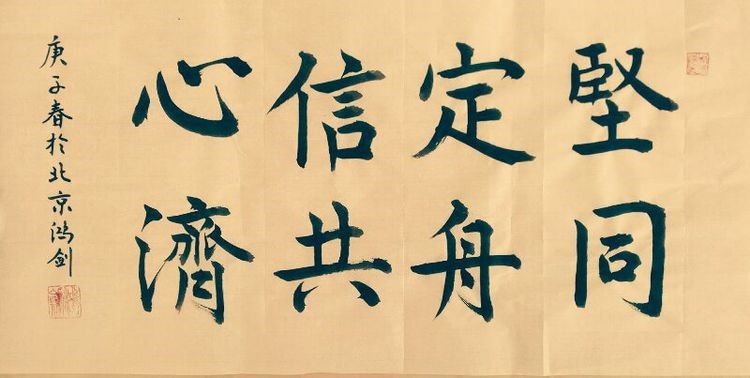 堅定信心
同舟共濟
庚子春於北京鸿剑